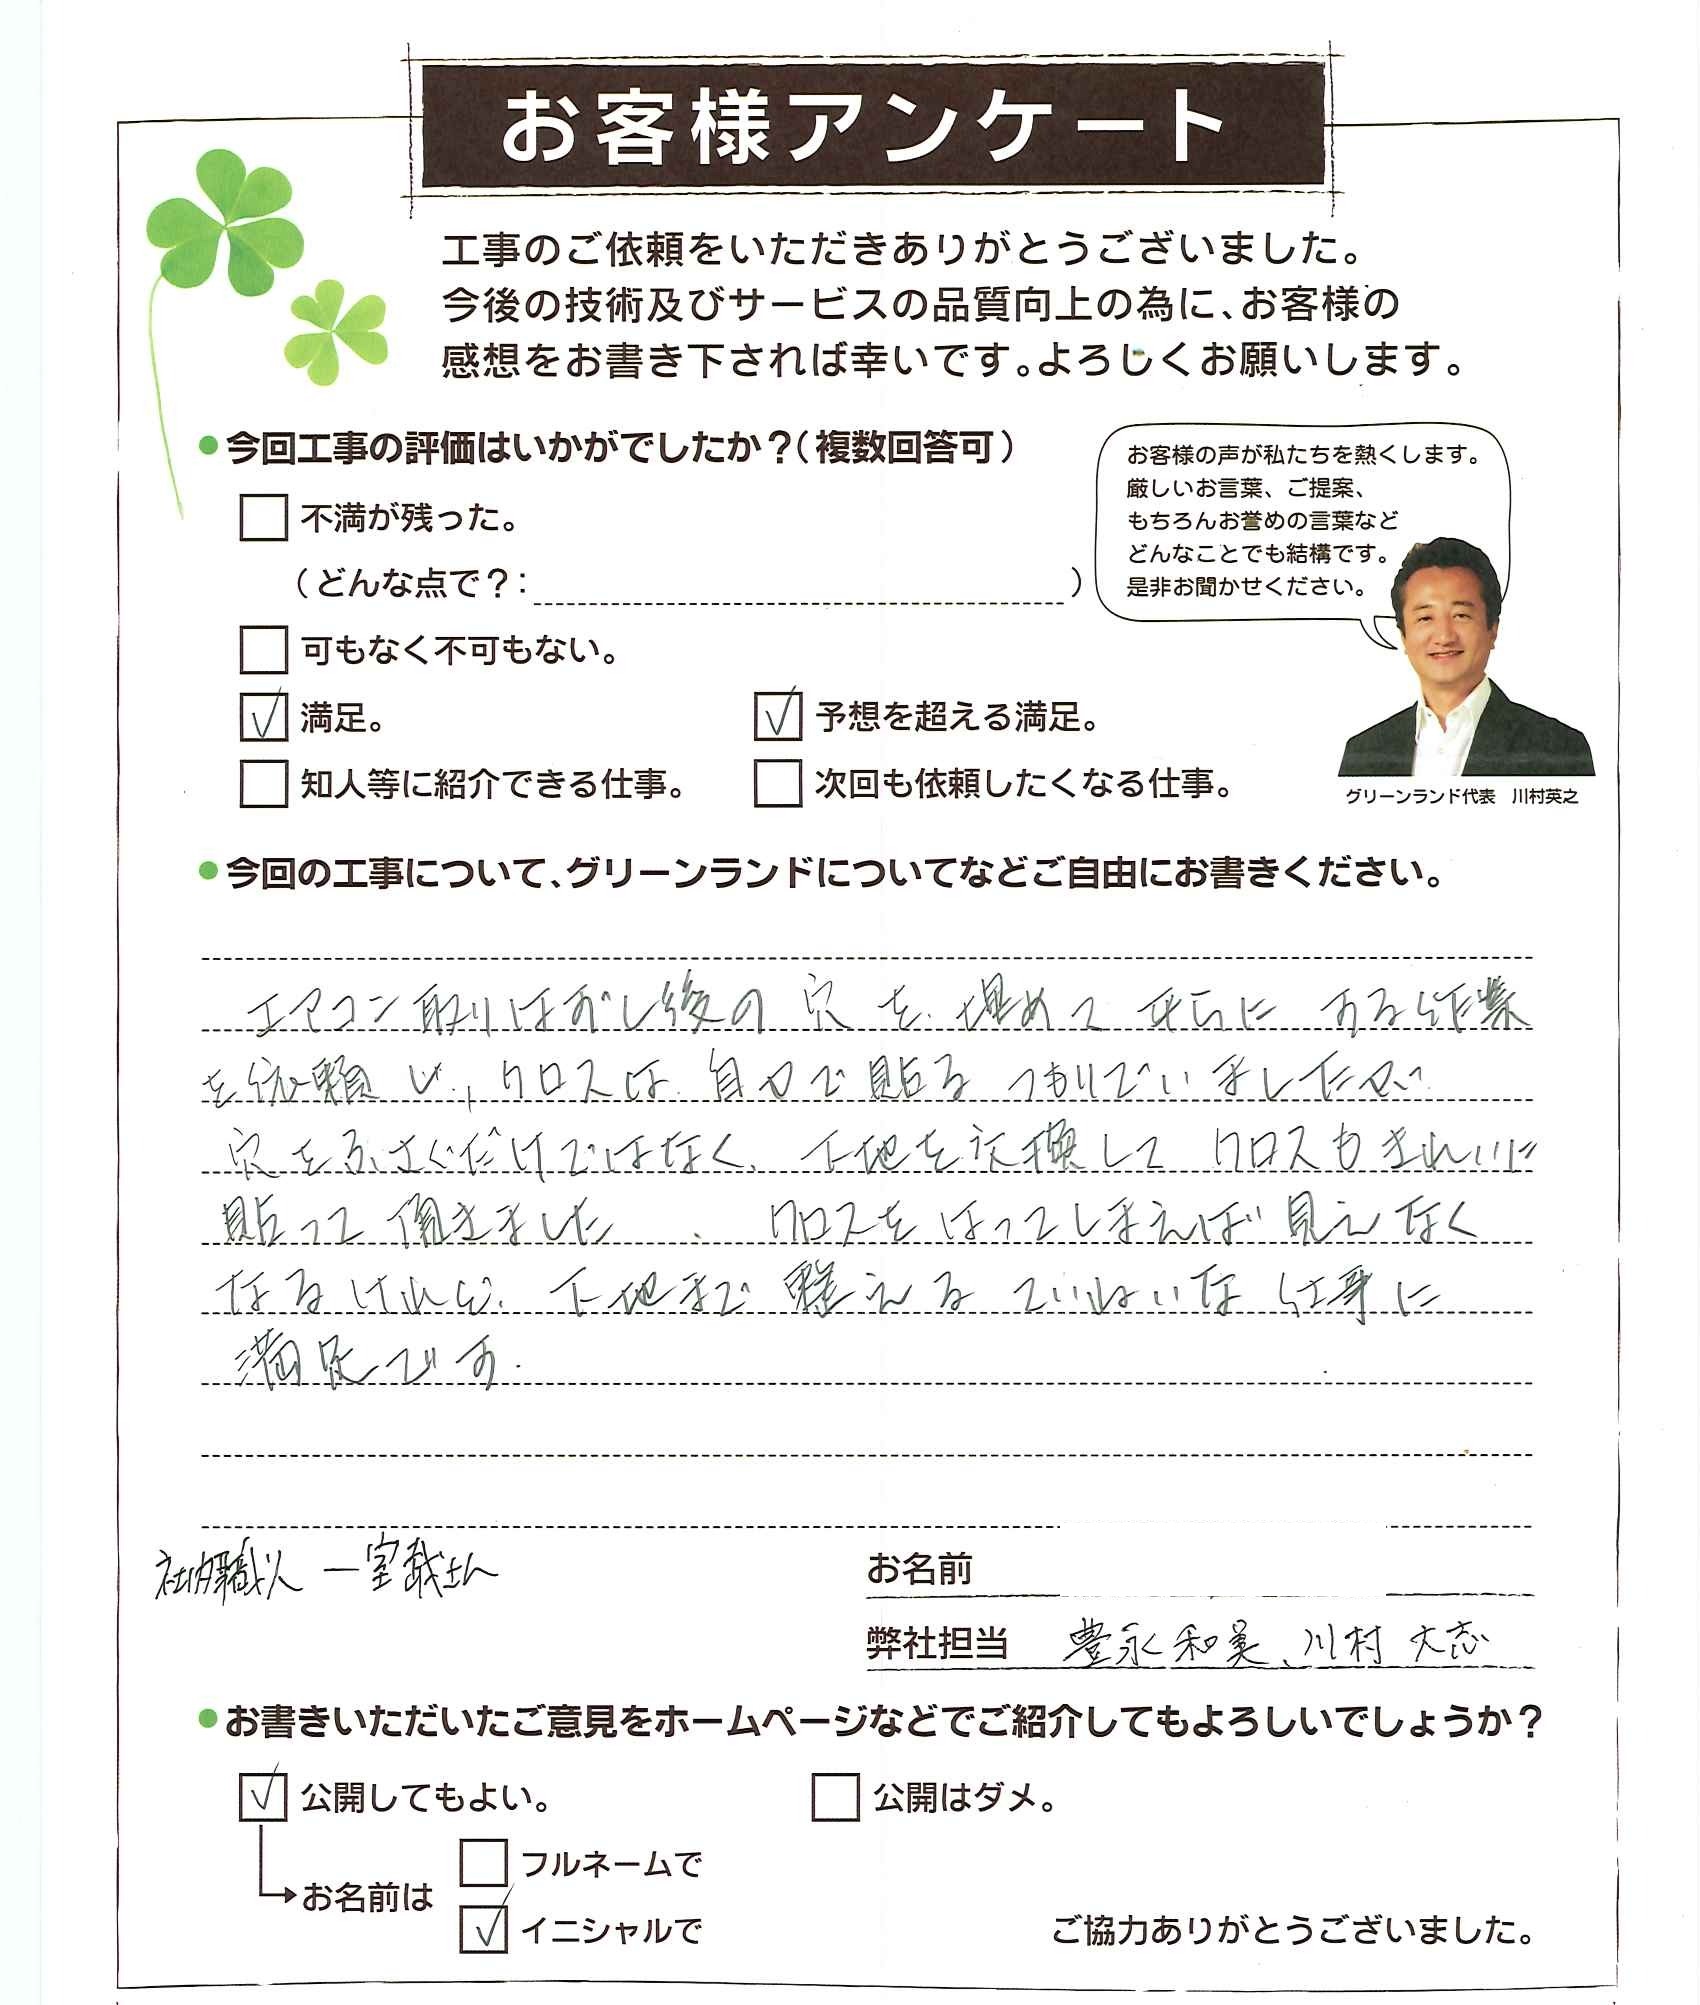 お客様アンケート
工事のご依頼をいただきありがとうございました。
今後の技術及びサービスの品質向上の為に、お客様の
感想をお書き下されば幸いです。よろしくお願いします。
●今回工事の評価はいかがでしたか？（複数回答可）
お客様の声が私たちを熱くします。
厳しいお言葉、ご提案、
もちろんお誉めの言葉など
どんなことでも結構です。
是非お聞かせください。
不満が残った。
（どんな点で？：　）
可もなく不可もない。
満足。　予想を超える満足。
知人等に紹介できる仕事。　次回も依頼したくなる仕事。
グリーンランド代表　川村英之
●今回の工事について、グリーンランドについてなどご自由にお書きください。
エアコン取りはずし後の穴を埋めて平らにする作業
を依頼し、クロスは自分で貼るつもりでいましたが
穴をふさぐだけではなく、下地を交換してクロスもきれいに
貼って頂きました、クロスをはってしまえば見えなく
なるけれど、下地まで整えるていねいな仕事に
満足です.
社内職人 一室哉さん
お名前
弊社担当 豊永和美、川村大志
●お書きいただいたご意見をホームページなどでご紹介してもよろしいでしょうか？
公開してもよい。　公開はダメ。
お名前は
フルネームで
イニシャルで
ご協力ありがとうございました。